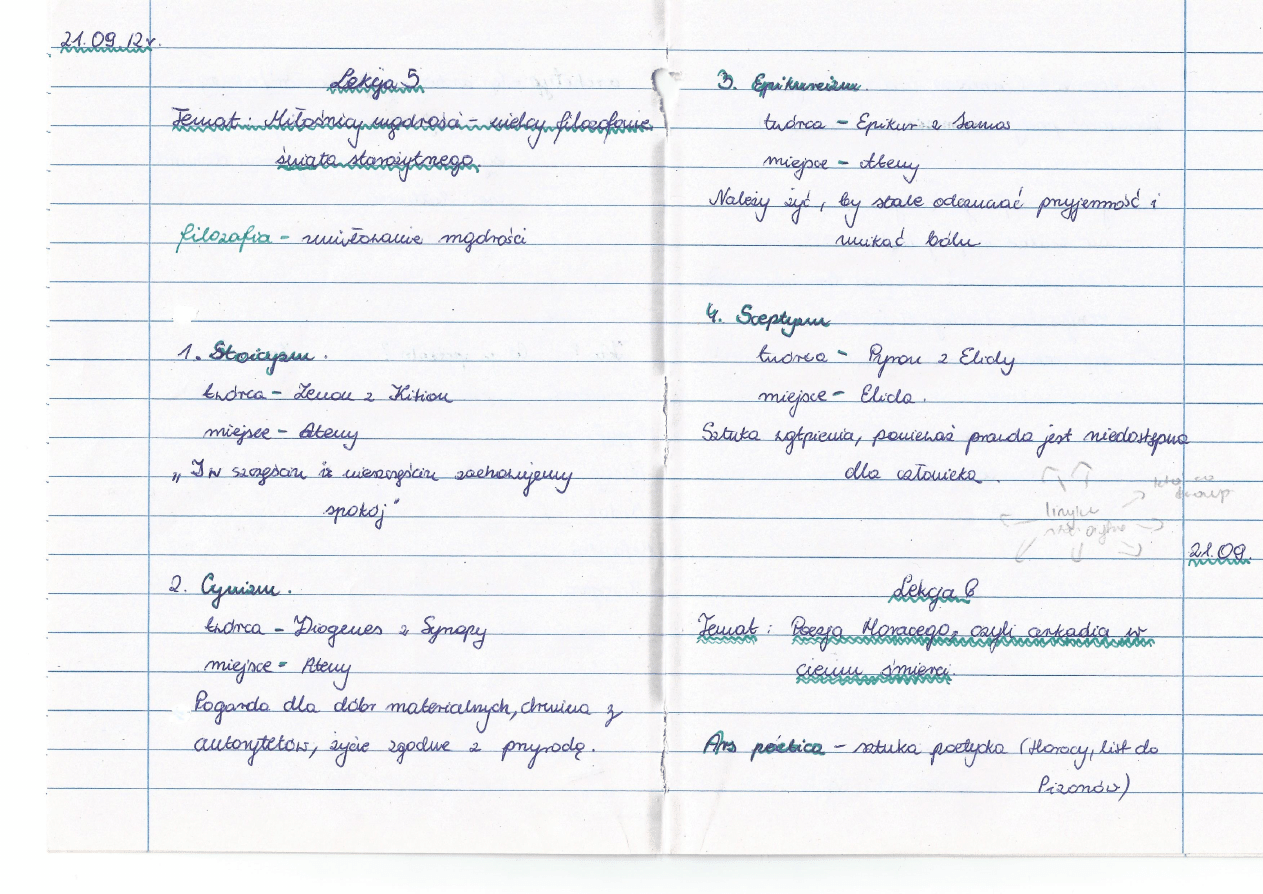 21.09.12r.
Lekcja 5
Temat: Miłośnicy mądrości - wielcy filozofowie
świata starożytnego.
filozofia - umiłowanie mądrości
1. Stoicyzm.
twórca - Zenon z Kition
miejsce - Ateny
„I w szczęściu i w nieszczęściu zachowujemy
spokój"
2. Cynizm.
twórca - Diogenes z Synopy
miejsce - Ateny
Pogarda dla dóbr materialnych, drwina z
autorytetów, życie zgodne z przyrodą.
3. Epikureizm.
twórca - Epikur z Samos
miejsce - Ateny
Należy żyć, by stale odczuwać przyjemność i
unikać bólu
4. Sceptyzm
twórca - Pyron z Elidy
miejsce - Elida.
Sztuka wątpienia, ponieważ prawda jest niedostępna
dla człowieka.
21.09.
Lekcja 6
Temat: Poezja Horacego, czyli arkadia w
cieniu śmierci.
Ars poetica - sztuka poetycka (Horacy, list do
Pizonów)